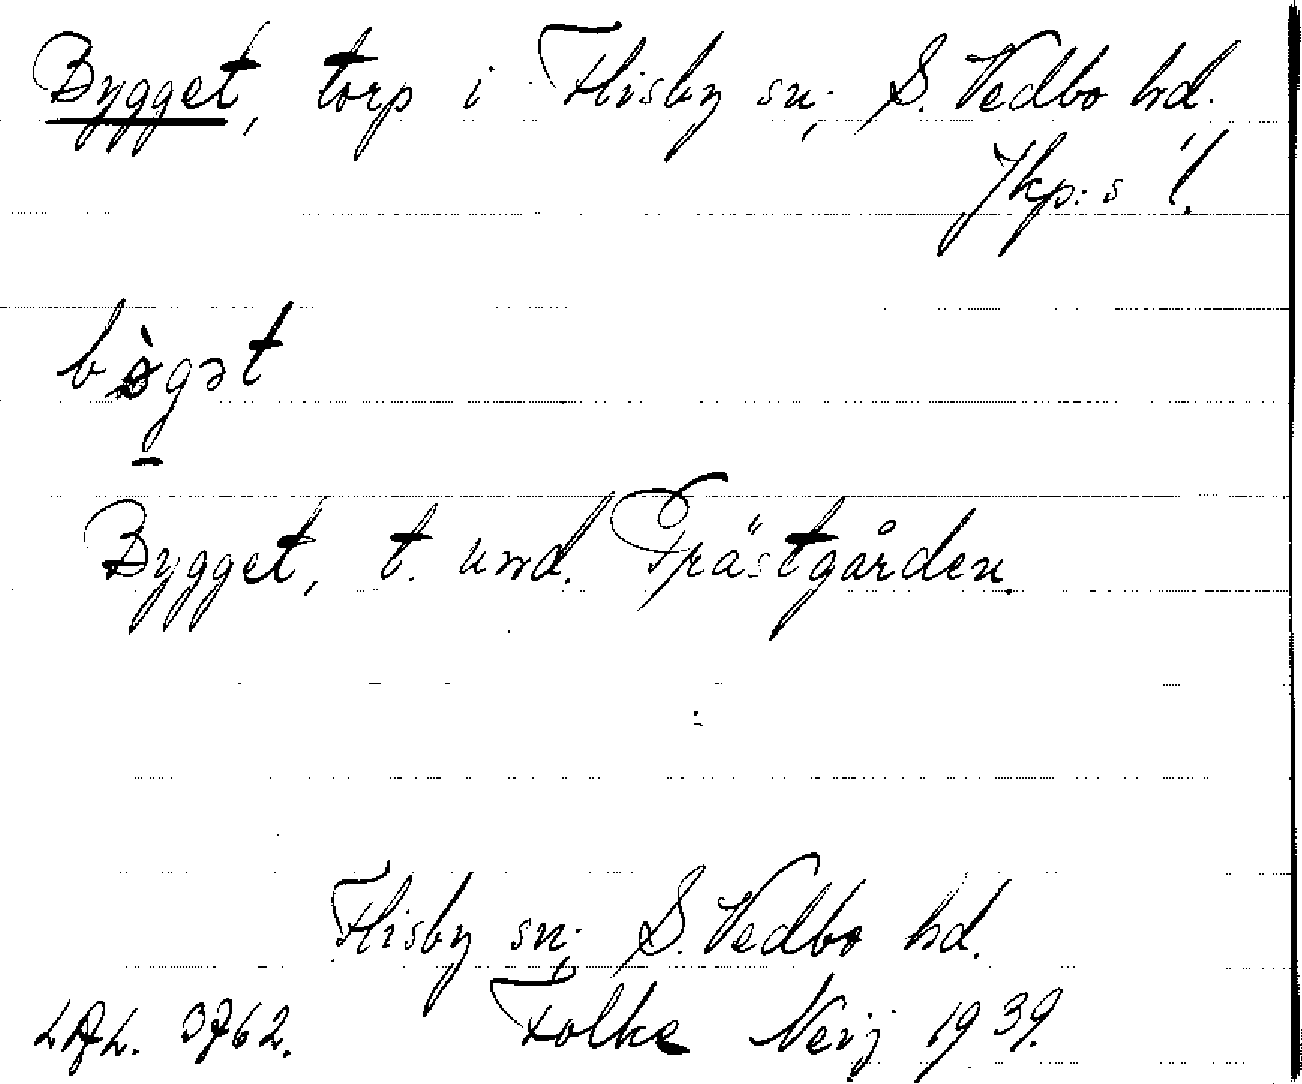 Bygget, torp i Flisby sn; S. Vedbo hd.
Jkp:s l.
bø̀gət
Bygget, t. und. Prästgården.
Flisby sn; S. Vedbo hd.
3762. Folke Nerij 1939.